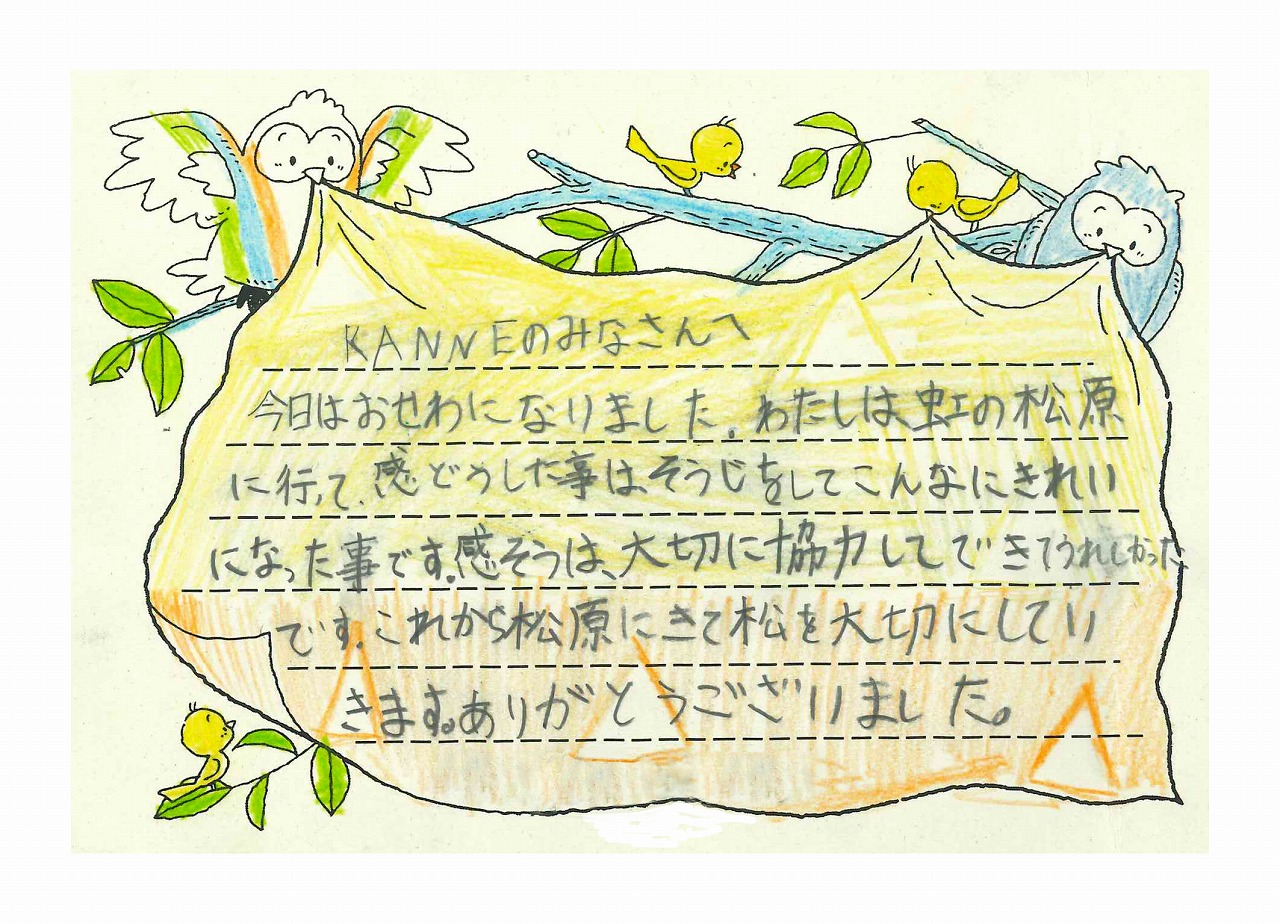 KANNEのみなさんへ
今日はおせわになりました。わたしは、虹の松原
に行って、感どうした事は、そうじをしてこんなにきれい
になった事です。感そうは、大切に協力してできてうれしかった
です。これから松原にきて松を大切にしてい
きます。ありがとうございました。